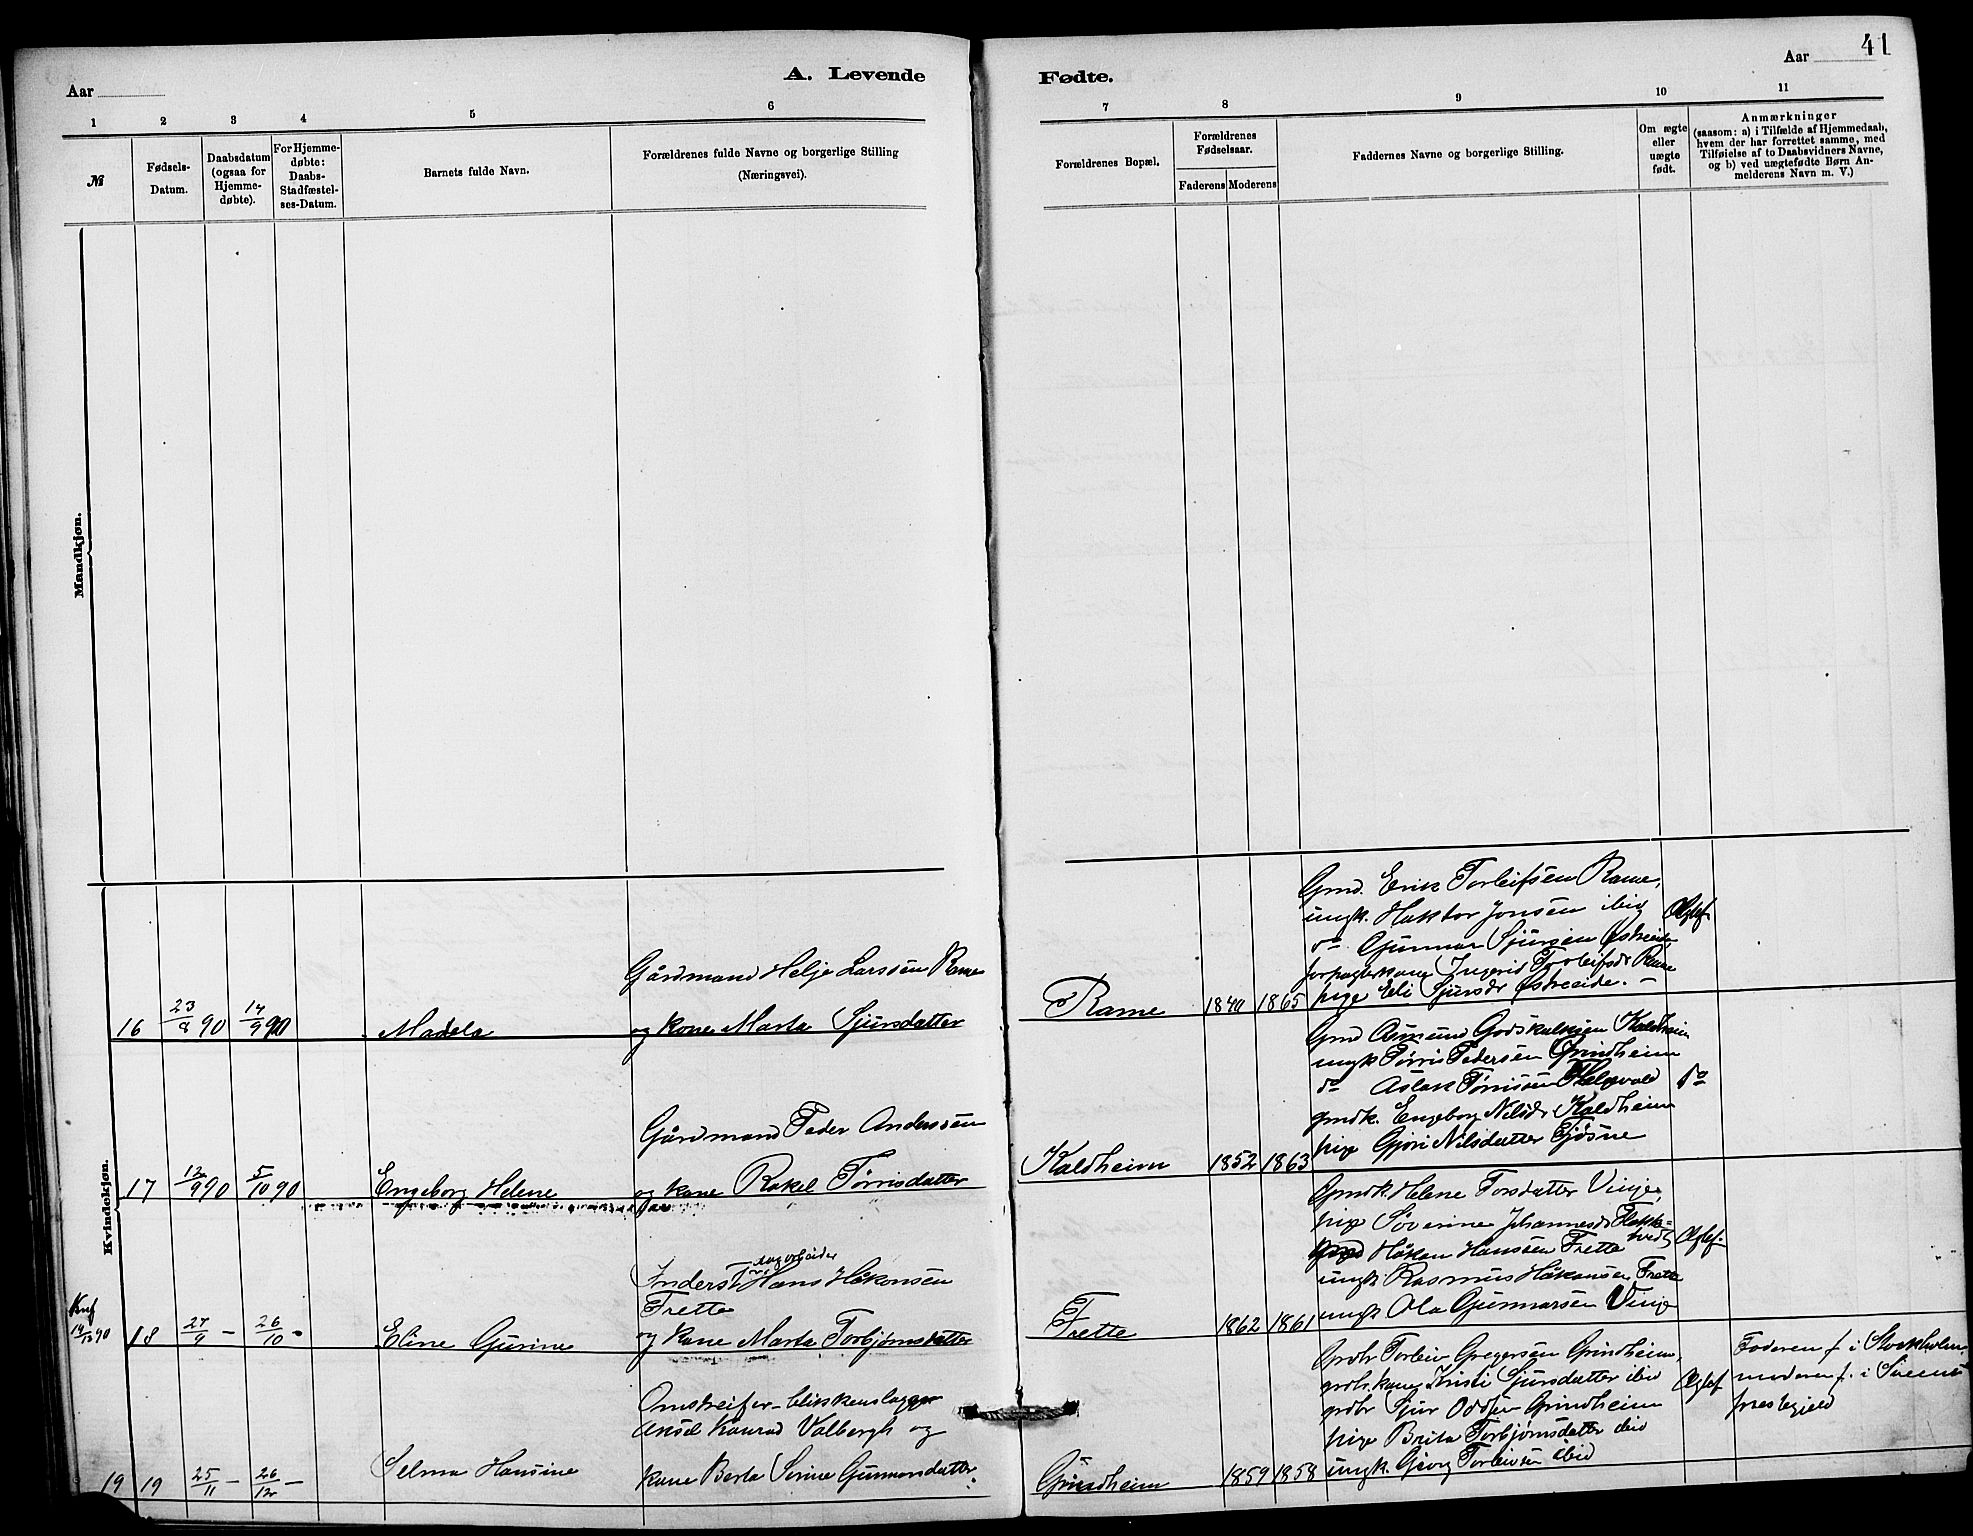 41
A. Levende Fødte.
Aar
Aar
1 2 3 4 5 6 7 8 9 10 11
№
Fødsels-
Datum.
Daabsdatum
(ogsaa for
Hjemme-
døbte).
For Hjemme-
døbte:
Daabs-
Stadfæstel-
ses-Datum.
Barnets fulde Navn.
Forældrenes fulde Navne og borgerlige Stilling
(Næringsvei).
Forældrenes Bopæl.
Forældrenes
Fødselsaar.
Faderens Moderens
Faddernes Navne og borgerlige Stilling.
Om ægte
eller
uægte
født.
Anmærkninger
(saasom: a) i Tilfælde af Hjemmedaab,
hvem der har forrettet samme, med
Tilføielse af to Daabsvidners Navne,
og b) ved uægtefødte Børn An-
melderens Navn m. V.)
Mandkjøn.
Kvindekjøn.
16 23/8 90 14/9 90 Madela
Gårdmand Helje Larssen Rame
og kone Marta Sjursdatter
Rame 1840 1865
Grmd. Erik Torleifsen Rame,
ungk. Haktor Jonsen ibid
do Gunnar Sjursen Østreide
forpagterkone Ingerid Torleifsdr Rame
pige Eli Sjursdr Østreeide.
Ægtef.
17 12/9 90 5/10 90 Engeborg Helene
Gårdmand Peder Anderssen
og kone Rakel Tørrisdatter
Kaldheim 1852 1863
Grmd Asmund Godskalksen Kaldheim
ungk Tørris Pedersen Grindheim
do Aslak Tørrissen
grmdk. Engeborg Nilsdr Kaldheim
pige Gjøri Nilsdatter Gjøsne
do
Knf
14/10 90
18 27/9 – 26/10 – Eline Gurine
Inderst og dagarbeider Hans Håkonsen
Frette
og kone Marta Torbjørnsdatter
Frette 1862 1861
Grmdk Helene Torsdatter Vinje,
pige Søverine Johannesdr
Håkon Hanssen Frette
ungk Rasmus Håkonsen Frette
ungk Ola Gunnarsen Vinje
Ægtef.
19 19 25/11 – 26/12 – Selma Hansine
Omstreifer – blikkenslager
Aksel Konrad Valbergh og
kone Berta Serine Gunnarsdatter.
Grindheim 1859 1858
grdbr Torleiv Gregersen Grindheim,
grdbr.kone Kristi Sjursdatter ibid
grdbr Sjur Oddsen Grindheim
pige Brita Torbjørnsdatter ibid
ungk. Georg Torleivsen ibid
Ægtef
Faderen f. i Stockholm,
moderen f. i
prestegjeld